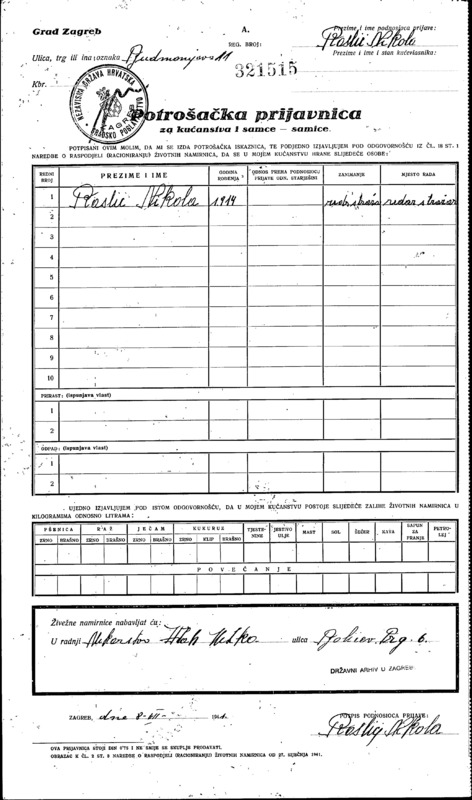 Grad Zagreb
A.
Prezime i ime podnosioca prijave:
REG. BROJ:
Raslić Nikola
Prezime i ime i stan kućevlasnika:
Ulica, trg ili ina oznaka
11
321515
Kbr.
NEZAVISNA DRŽAVA HRVATSKA
ZAGREB
GRADSKO POGLAVARSTVO
Potrošačka prijavnica
za kućanstva i samce — samice.
POTPISANI OVIM MOLIM, DA MI SE IZDA POTROŠAČKA ISKAZNICA, TE PODJEDNO IZJAVLJUJEM POD ODGOVORNOŠĆU IZ ČL. 18 ST. 1
NAREDBE O RASPODJELI (RACIONIRANJU) ŽIVOTNIH NAMIRNICA, DA SE U MOJEM KUĆANSTVU HRANE SLIJEDEĆE OSOBE:
REDNI BROJ
PREZIME I IME
GODINA ROĐENJA
ODNOS PREMA PODNOSIOCU PRIJAVE ODN. STARJEŠINI
ZANIMANJE
MJESTO RADA
1 Raslić Nikola 1914 redar
2
3
4
5
6
7
8
9
10
PRIRAST: (ispunjava vlast)
1
2
OTPAD: (ispunjava vlast)
1
2
UJEDNO IZJAVLJUJEM POD ISTOM ODGOVORNOŠĆU, DA U MOJEM KUĆANSTVU POSTOJE SLIJEDEĆE ZALIHE ŽIVOTNIH NAMIRNICA U
KILOGRAMIMA ODNOSNO LITRAMA:
PŠENICA RAŽ JEČAM KUKURUZ TJESTENINE JESTIVO ULJE MAST SOL ŠEĆER KAVA SAPUN ZA PRANJE PETROLEJ
ZRNO BRAŠNO ZRNO BRAŠNO ZRNO BRAŠNO ZRNO KLIP BRAŠNO
POVEĆANJE
Živežne namirnice nabavljat ću:
U radnji ulica 6.
DRŽAVNI ARHIV U ZAGREBU
ZAGREB, dne 8-VII- 1941.
POTPIS PODNOSIOCA PRIJAVE:
Raslić Nikola
OVA PRIJAVNICA STOJI DIN 0'75 I NE SMIJE SE SKUPLJE PRODAVATI.
OBRAZAC K ČL. 2 NAREDBE O RASPODJELI (RACIONIRANJU) ŽIVOTNIH NAMIRNICA OD 27. SIJEČNJA 1941.